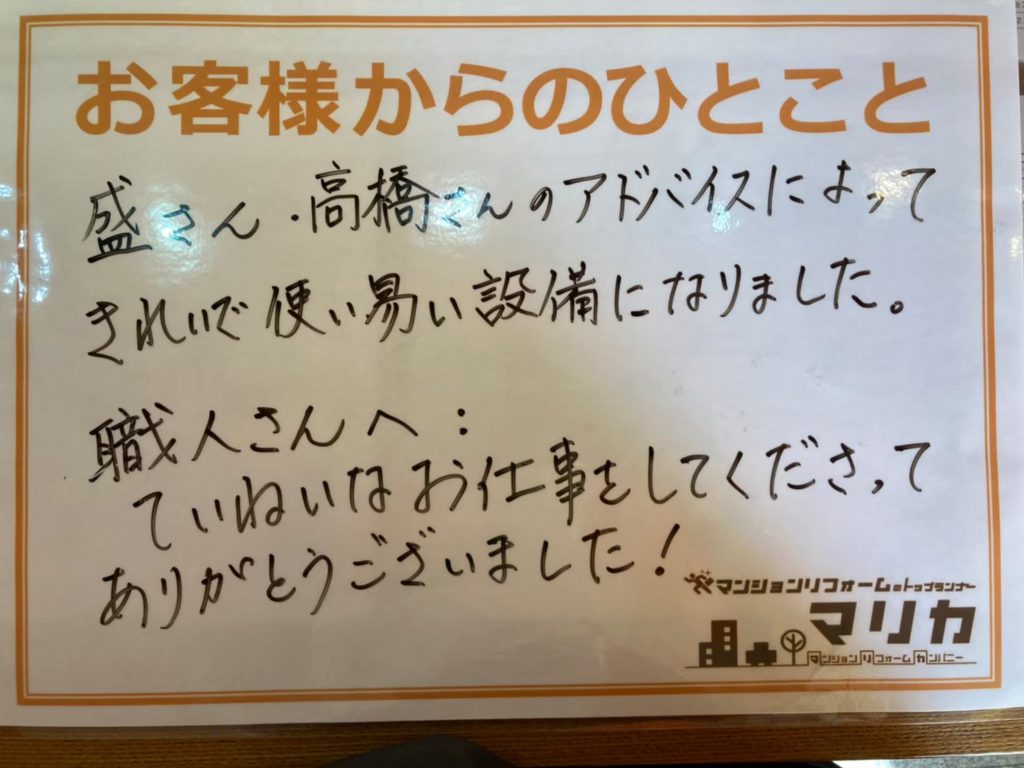 お客様からのひとこと
盛さん・高橋さんのアドバイスによって
きれいで使い易い設備になりました。
職人さんへ:
ていねいなお仕事をしてくださって
ありがとうございました!
マンションリフォームのトップランナー
マリカ
マンションリフォームカンパニー